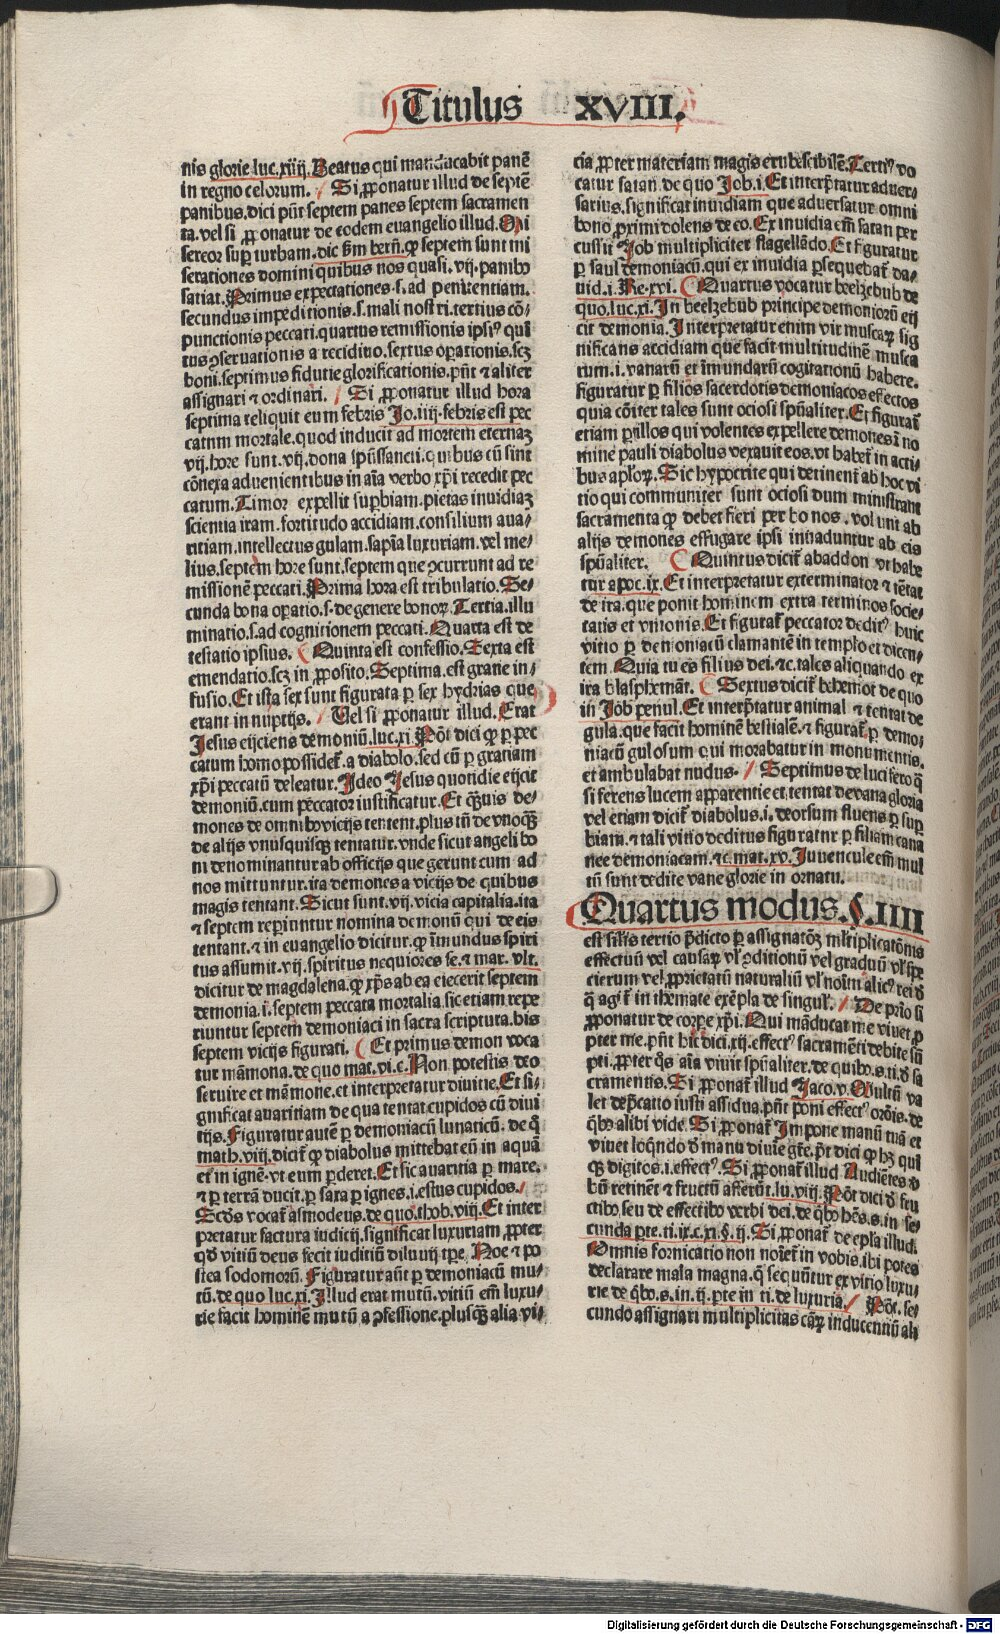 Titulus XVIII.
nis glorie luc.xiiij. Beatus qui manducabit panē
in regno celorum. / Si ꝓponatur illud de septē
panibus.dici pn̄t septem panes septem sacramen
ta.vel si ꝓponatur de eodem euangelio illud. Mi
sereor suꝑ turbam.dic ẜm bern̄.ꝙ septem sunt mi
serationes domini quibus nos quasi .vij.panibꝰ
satiat. Primus expectationes.s.ad penitentiam.
secundus impeditionis.s.mali nostri.tertius cō-
punctionis peccati.quartus remissionis ipsiꝰ qui
tus ꝯseruationis a recidiuo.sextus oꝑationis.scꝫ
boni.septimus fidutie glorificationis.pn̄t ⁊ aliter
assignari ⁊ ordinari. / Si ꝓponatur illud hora
septima reliquit eum febris Jo.iiij.febris est pec
catum mortale.quod inducit ad mortem eternaꝫ
vij.hore sunt.vij.dona spūssancti.quibus cū sint
cōnexa aduenientibus in aīa verbo xp̄i recedit pec
catum. Timor expellit suꝑbiam.pietas inuidiaꝫ
scientia iram.fortitudo accidiam.consilium aua-
ritiam.intellectus gulam.sapīa luxuriam.vel me-
lius.septem hore sunt.septem que ꝯcurrunt ad re
missionē peccati. Prima hora est tribulatio. Se-
cunda bona oꝑatio.s.de genere bonoꝝ. Tertia.illu
minatio.s.ad cognitionem peccati. Quarta est de
testatio ipsius. Quinta est confessio. Sexta est
emendatio.scꝫ in ꝓposito. Septima.est gratie in-
fusio. Et ista sex sunt figurata ꝑ sex hydrias que
erant in nuptijs. / Vel si ꝓponatur illud. Erat
Jesus eijciens demoniū.luc.xi. Pōt dici ꝙ ꝑ pec
catum homo possidet᷑.a diabolo.sed cū ꝑ gratiam
xp̄i peccatū deleatur. Ideo Jesus quotidie eijcit
demoniū.cum peccator iustificatur. Et ꝗ̄uis de-
mones de omnibꝰ vicijs tentent.plus tn̄ de vnoqͣꝫ
de alijs vnusquisqꝫ tentatur.vnde sicut angeli bo
ni denominantur ab officijs que gerunt cum ad
nos mittuntur.ita demones a vicijs de quibus
magis tentant. Sicut sunt.vij.vicia capitalia.ita
⁊ septem reꝑiuntur nomina demonū qui de eis
tentant.⁊ in euangelio dicitur.ꝙ īmundus spiri
tus assumit.vij.spiritus nequiores se.⁊ mar. vlt.
dicitur de magdalena.ꝙ xp̄s ab ea eiecerit septem
demonia.i.septem peccata mortalia.sic etiam repe
riuntur septem demoniaci in sacra scriptura.his
septem vicijs figurati. Et primus demon voca
tur māmona.de quo mat.vi.c. Non potestis deo
seruire et māmone.et interpretatur diuitie. Et si-
gnificat auaritiam de qua tentat cupidos cū diui
tijs. Figuratur autē ꝑ demoniacū lunaticū. de q̊
math.viij.dicit᷑ ꝙ diabolus mittebat eū in aquā
et in ignē.vt eum ꝑderet. Et sic auaritia ꝑ mare.
⁊ ꝑ terrā ducit.ꝑ saxa ꝑ ignes.i.estus cupidos. /
Scd̄s vocat᷑ asmodeus.de quo.thob.viij. Et inter
pretatur factura iudicij.significat luxuriam ꝓpter
qd̄ vitiū deus fecit iuditiū diluuij tꝑe Noe ⁊ po
stea sodomorū. Figuratur aūt ꝑ demoniacū mu-
tū.de quo luc.xi. Illud erat mutū.vitiū em̄ luxu-
rie facit hominē mutū a ꝯfessione.plusqͣꝫ alia vi-
cia ꝓpter materiam magis erubescibilē. Tertiꝰ vo
catur satan.de quo Job.i. Et interp̄tatur aduer-
sarius.significat inuidiam que aduersatur omni
bono ꝓximi dolens de eo. Ex inuidia em̄ satan per
cussit Job multipliciter flagellādo. Et figuratur
ꝑ saul demoniacū.qui ex inuidia ꝑsequebat᷑ da-
uid.i.Re.xvi. Quartus vocatur beelzebub de
quo.luc.xi. In beelzebub principe demoniorū eij
cit demonia. Interpretatur enim vir muscaꝝ sig
nificans accidiam que facit multitudinē musca
rum.i.vanarū et īmundarū cogitationū habere.
figuratur ꝑ filios sacerdotis demoniacos effectos
quia cōiter tales sunt ociosi spūaliter. Et figurat᷑
etiam ꝑ illos qui volentes expellere demones ī no
mine pauli diabolus vexauit eos.vt habet᷑ in acti-
bus apl̄oꝝ. Sic hypocrite qui detinent᷑ ab hoc vi
tio qui communiter sunt ociosi dum ministrant
sacramenta ꝙ debet fieri per bonos.volunt ab
alijs demones effugare ipsi inuaduntur ab eis
spūaliter. Quintus dicit᷑ abaddon vt habe
tur apoc.ix. Et interpretatur exterminator ⁊ tētat
de ira.que ponit hominem extra terminos socie-
tatis et vnionis. Et figurat᷑ peccator deditꝰ huic
vitio ꝑ demoniacū clamantē in templo et dicen-
tem. Quia tu es filius dei.⁊c.tales aliquando ex
ira blasphemāt. Sextus dicit᷑ behemot de quo
in Job penul. Et interp̄tatur animal ⁊ tentat de
gula.que facit hominē bestialē.⁊ figurat᷑ ꝑ demo-
niacū gulosum qui morabatur in monumentis.
et ambulabat nudus. / Septimus de lucifero q̄
si ferens lucem apparentie et tentat de vana gloria
vel etiam dicit᷑ diabolus.i.deorsum fluens ꝑ suꝑ
biam.⁊ tali vitio deditus figuratur ꝑ filiam cana
nee demoniacam.⁊c.mat.xv. Iuuencule em̄ mul
tū sunt dedite vane glorie in ornatu.
Quartus modus.§.IIII
est sil̄is tertio p̄dicto ꝑ assignatōꝫ ml̄tiplicatōnis
effectuū vel causaꝝ vl̓ ꝯditionū vel graduū vl̓ spe
cierum vel ꝓprietatū naturaliū vl̓ noīm alicꝰ rei d̓
q̄ agit᷑ in themate exēpla de singul̓. / De prīo si
ꝓponatur de corꝑe xp̄i. Qui māducat me viuet ꝓ
pter me.pn̄t hic dici.xij.effectꝰ sacramēti debite sū
pti.ꝓpter q̊s aīa viuit spūaliter.de quibꝰ.s.ti.d̓ sa
cramentis. Si ꝓponat᷑ illud Jaco.v. Multū va
let dep̄catio iusti assidua.pn̄t poni effectꝰ orōis.de
q̄bꝰ alibi vide. Si ꝓponat᷑ Impone manū tuā et
viuet loq̄ndo d̓ manu diuīe gr̄e.pōt dici ꝙ hꝫ qui
qꝫ digitos.i.effectꝰ. Si ꝓponat᷑ illud Audiētes v̓
bū retinēt ⁊ fructū afferūt.lu.viij. Pōt dici d̓ fru
ctibꝰ seu de effectibꝰ verbi dei.de q̄bꝰ hēs.s.in se-
cunda ꝑte.ti.ix.c.xi.§.ij. Si ꝓponat᷑ de epl̄a illud.
Omnis fornicatio non noīet᷑ in vobis.ibi potes
declarare mala magna.q̄ sequūtur ex vitio luxu-
rie de q̄bꝰ.s.in.ij.ꝑte in ti.de luxuria. / Pōt.se-
cundo assignari multiplicitas caꝝ inducentiū ali
Digitalisierung gefördert durch die Deutsche Forschungsgemeinschaft - DFG